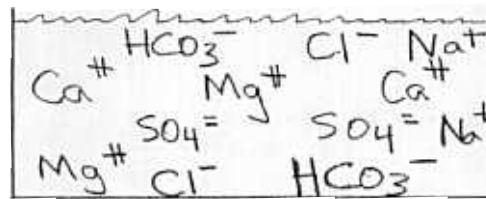 HCO₃⁻ Cl⁻ Na⁺
Ca⁺⁺ Mg⁺⁺ Ca⁺⁺
SO₄⁼ SO₄⁼ Na⁺
Mg⁺⁺ Cl⁻ HCO₃⁻